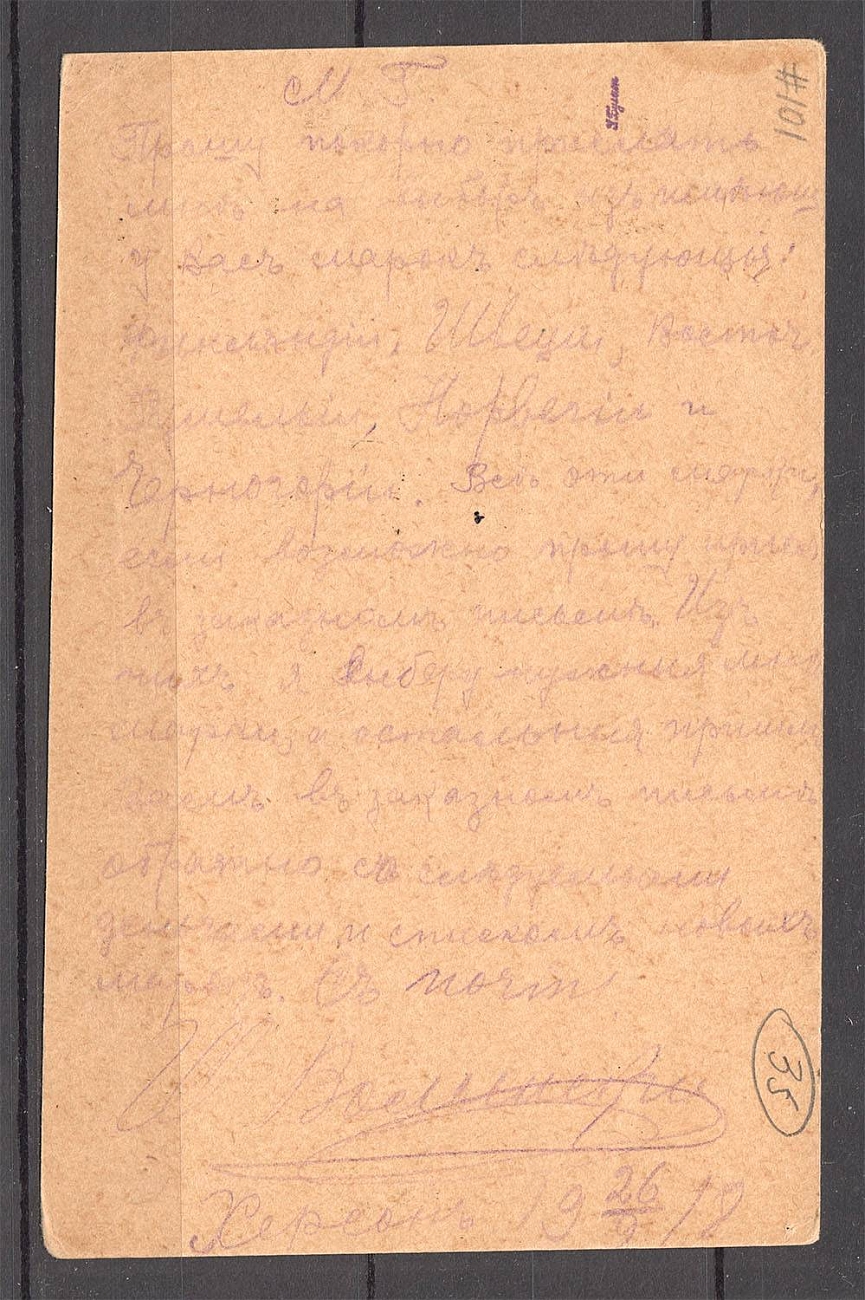 М Г
#101
Прошу покорно прислать
мнѣ на выборъ изъ
у васъ марокъ слѣдующія:
Финляндіи, Швеціи, Восточ
Румеліи, Норвегіи и
Черногоріи. Всѣ эти марки,
если возможно прошу
въ заказномъ письмѣ. Изъ
нихъ я выберу нужныя мнѣ
марки, а остальныя
въ заказномъ письмѣ
обратно съ слѣдуемыми
деньгами и спискомъ новыхъ
марокъ. Съ почт
35
Херсонъ 19 26 18